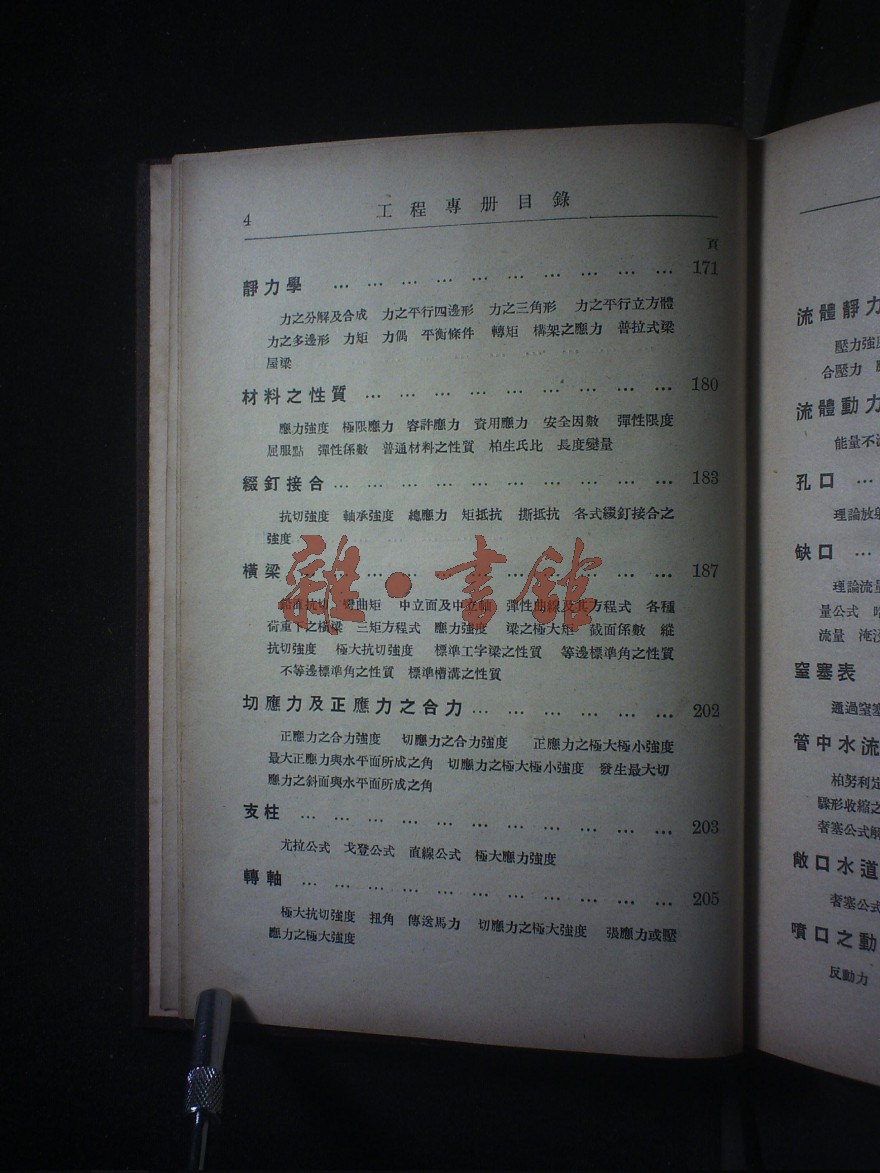 4 工程專册目錄
頁
靜力學 … … … … … … … … … … … 171
力之分解及合成 力之平行四邊形 力之三角形 力之平行立方體
力之多邊形 力矩 力偶 平衡條件 轉矩 構架之應力 普拉式梁
屋梁
材料之性質 … … … … … … … … … 180
應力強度 極限應力 容許應力 資用應力 安全因數 彈性限度
屈服點 彈性係數 普通材料之性質 柏生氏比 長度變量
綴釘接合 … … … … … … … … … … 183
抗切強度 軸承強度 總應力 矩抵抗 撕抵抗 各式綴釘接合之
強度
橫梁 … … … … … … … … … … … 187
鉛直抗切 彎曲矩 中立面及中立軸 彈性曲線及其方程式 各種
荷重下之橫梁 三矩方程式 應力強度 梁之極大矩 截面係數 縱
抗切強度 極大抗切強度 標準工字梁之性質 等邊標準角之性質
不等邊標準角之性質 標準槽溝之性質
切應力及正應力之合力 … … … … … … 202
正應力之合力強度 切應力之合力強度 正應力之極大極小強度
最大正應力與水平面所成之角 切應力之極大極小強度 發生最大切
應力之斜面與水平面所成之角
支柱 … … … … … … … … … … … 203
尤拉公式 戈登公式 直線公式 極大應力強度
轉軸 … … … … … … … … … … … 205
極大抗切強度 扭角 傳送馬力 切應力之極大強度 張應力或壓
應力之極大強度
雜·書館
流體靜力
壓力強
合壓力
流體動力
能量不
孔口 …
理論放
缺口 …
理論流
量公式
流量 淹
窒塞表
通過窒塞
管中水流
柏努利定
驟形收縮之
奢塞公式
敞口水道
奢塞公式
噴口之動
反動力